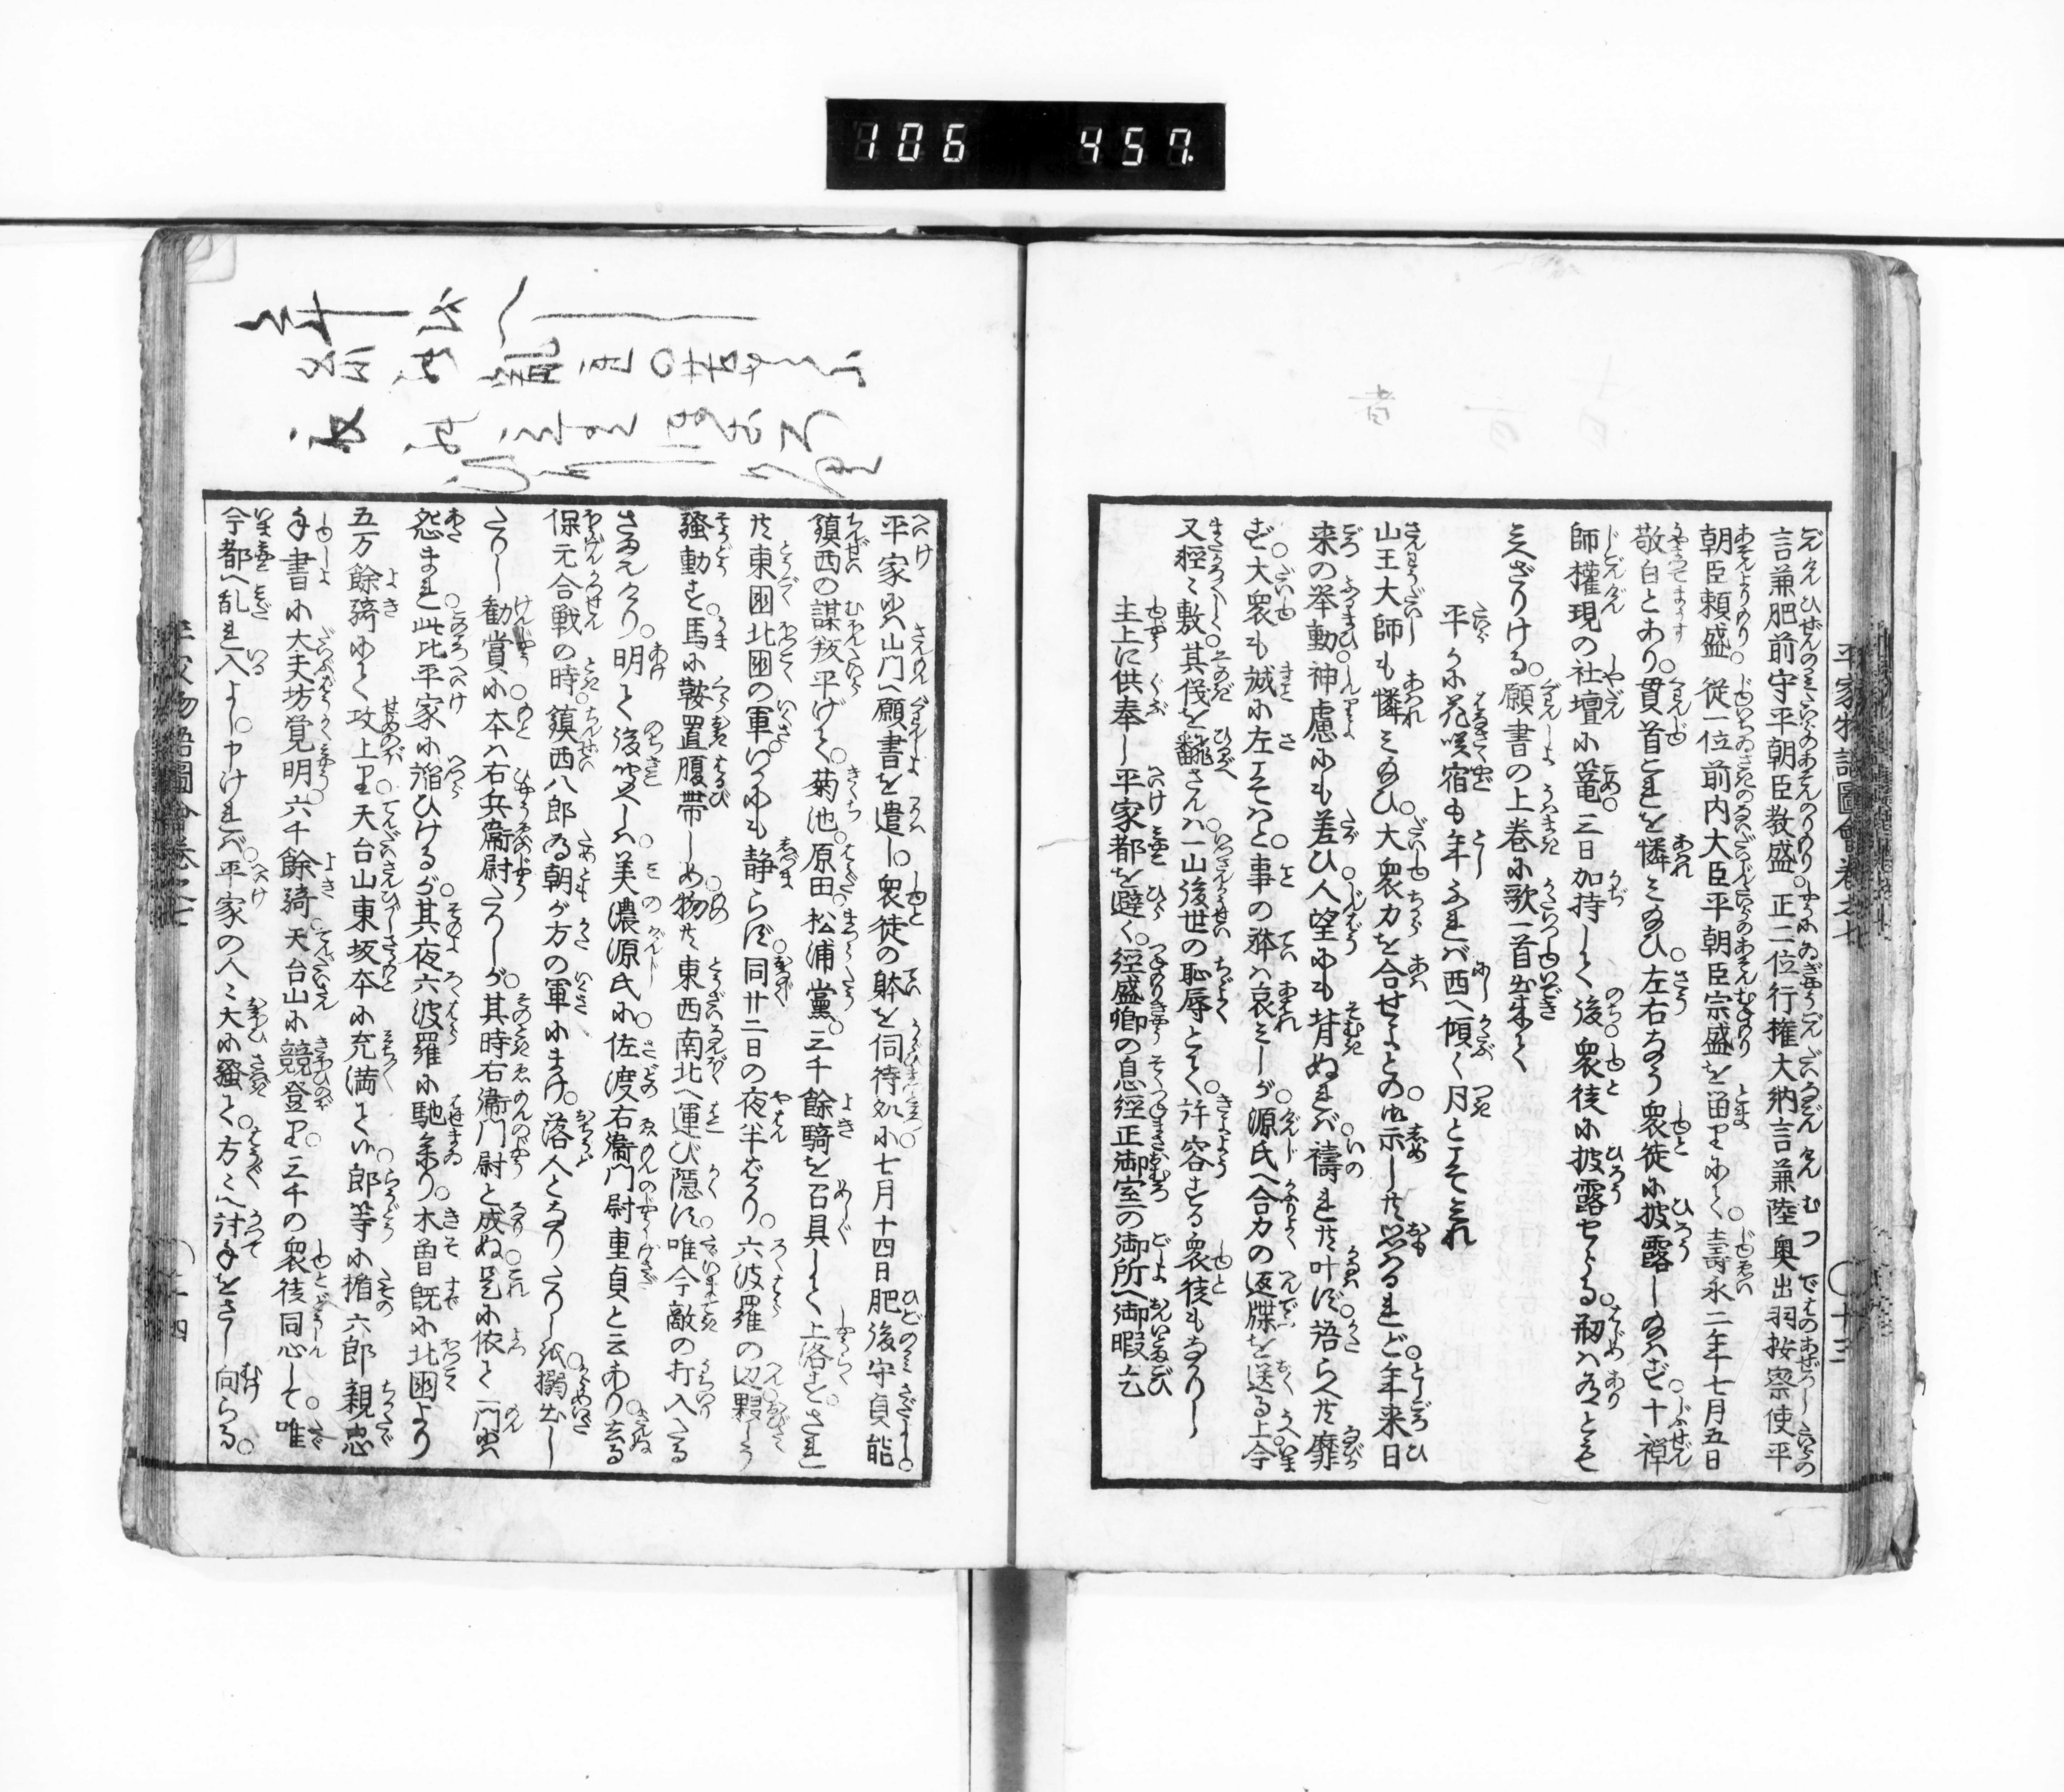 106 457.
平家物語圖會巻之七
十三
言兼肥前守平朝臣教盛正二位行権大納言兼陸奥出羽按察使平
朝臣頼盛従一位前内大臣平朝臣宗盛を留りにて壽永二年七月五日
敬白とあり貫首これを憐みたまひ左右なう衆徒に披露したまはず十禅
師権現の社壇に篭三日加持して後衆徒に披露せらる初はありとも
みへざりける願書の上巻に歌一首出来て
平かに花咲宿も年ふれば西へ傾く月とこそみれ
山王大師も憐みたまひ大衆力を合せよとの御示し共思はるれど年来日
来の挙動神慮にも差ひ人望にも背ぬれば禱れ共叶ず語らへ共靡
ず大衆も誠に左こそはと事の躰は哀みしが源氏へ合力の返牒を送る上今
又軽々敷其議を翻さんは一山後世の恥辱とて許容する衆徒もなかりし
主上に供奉し平家都を避く経盛卿の息経正御室の御所へ御暇乞
平家は山門へ願書を遣し衆徒の躰を伺待処に七月十四日肥後守貞能
鎮西の謀叛平げて菊池原田松浦黨三千餘騎を召具して上洛すされ
共東國北國の軍いかにも静らず同廿二日の夜半ばかり六波羅の辺夥しう
騒動す馬に鞍置腹帯しめ物共東西南北へ運び隠す唯今敵の打入たる
さまなりけり明て後笑へは美濃源氏に佐渡右衞門尉重貞と云あり去る
保元合戦の時鎮西八郎為朝が方の軍にまけ落人となりたりし搦出し
たりし勧賞に本は右兵衞尉たりしが其時右衞門尉と成ぬ是に依て一門には
怨まれ此比平家に諂ひけるが其夜六波羅に馳参り木曽既に北國より
五万餘騎にて攻上り天台山東坂本に充満てい郎等に楯六郎親忠
手書に大夫坊覚明六千餘騎天台山に競登り三千の衆徒同心して唯
今都へ乱れ入よし申ければ平家の人々大に騒て方々へ討手をさし向らる
平家物語圖會巻之七
十四